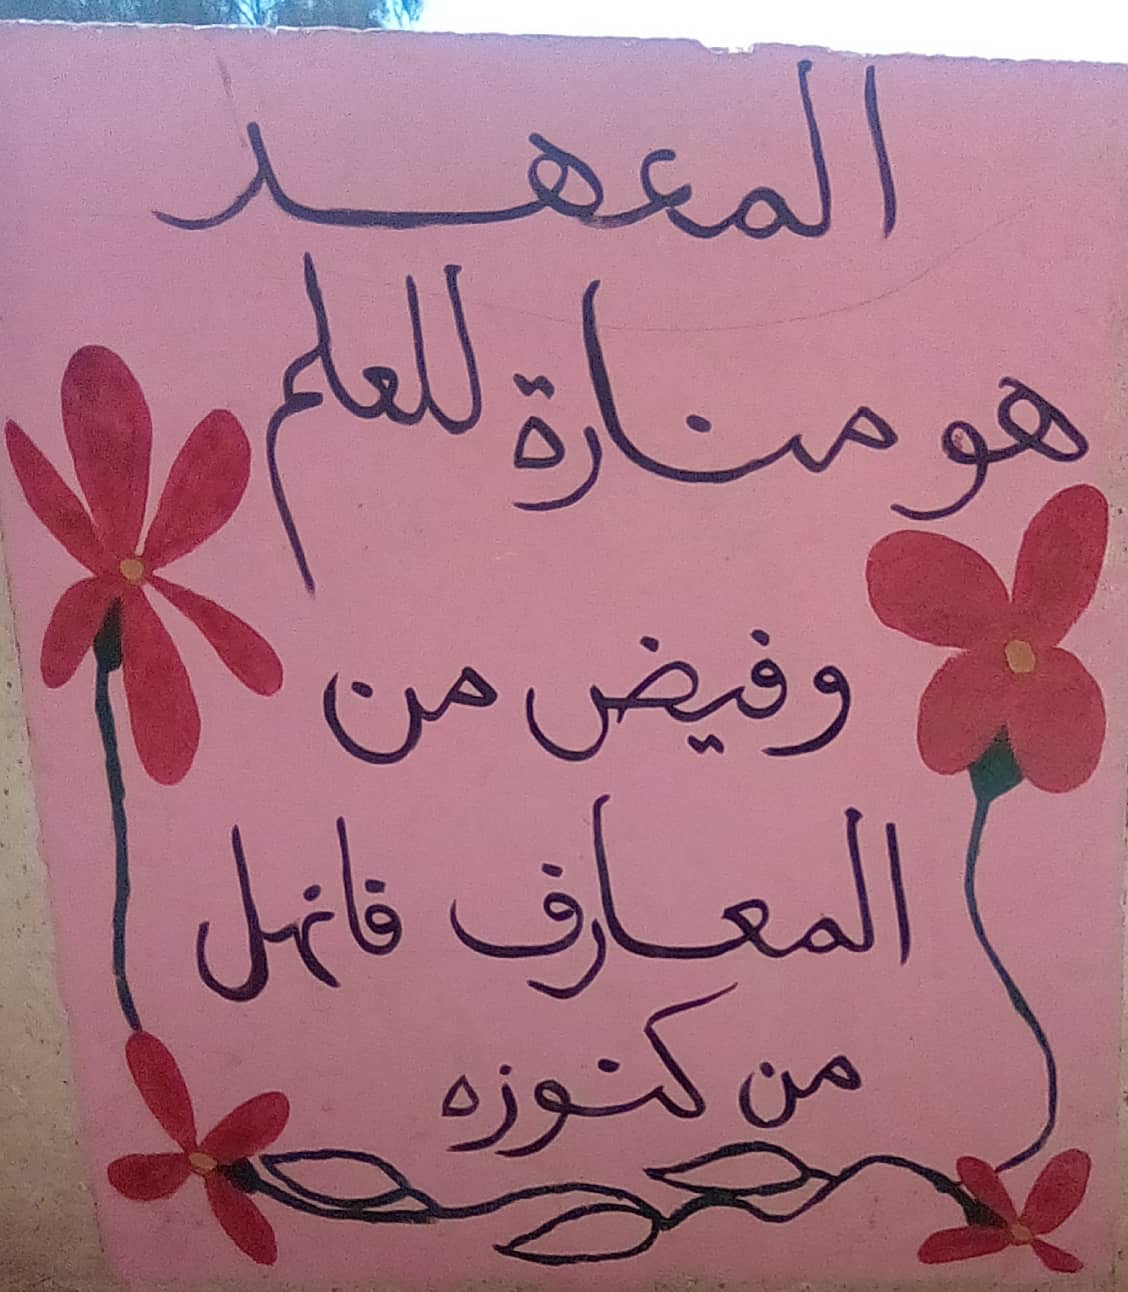 المعهد
هو منارة للعلم
وفيض من
المعارف فانهل
من كنوزه